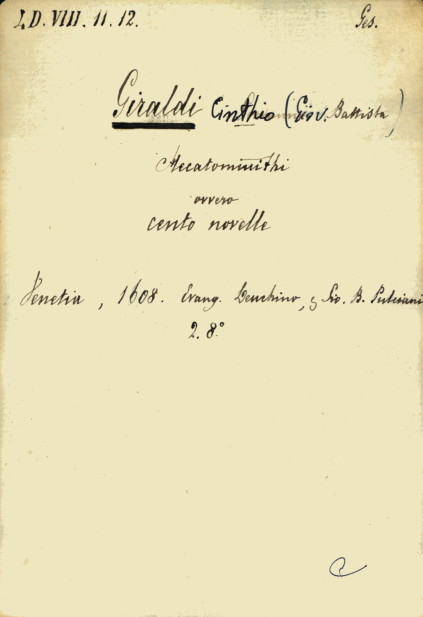 L D. VIII. 11. 12. Ges.
Giraldi Cinthio (Giov. Battista)
Hecatommithi
ovvero
cento novelle
Venetia, 1608. Evang. Deuchino, & Gio. B. Pulciani
2. 8°
C